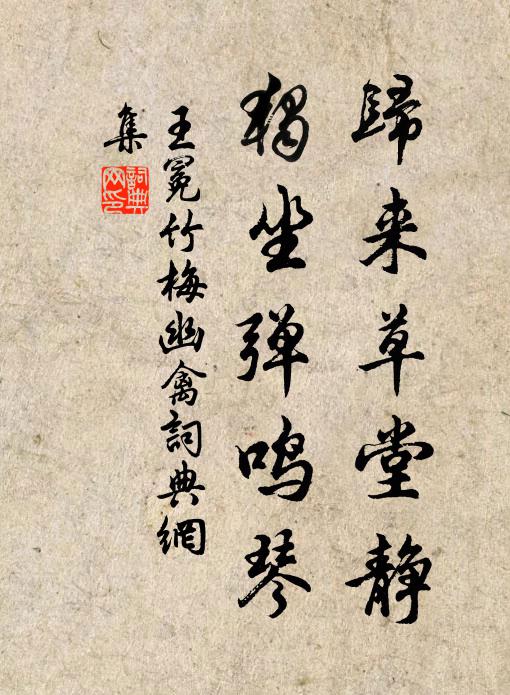 歸来草堂静
獨坐弹鸣琴
王冕竹梅幽禽詞典網
集
詞典
网印